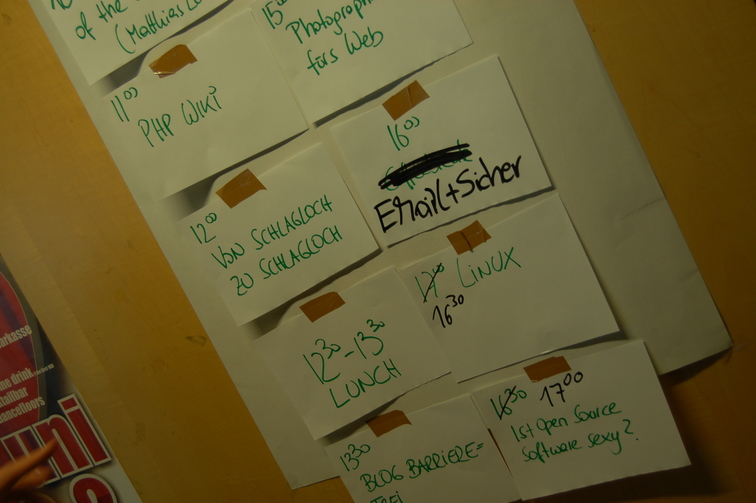 of the
(Matthias
11 00
PHP WIKI
12 00
VON SCHLAGLOCH
ZU SCHLAGLOCH
12 30 - 13 30
LUNCH
13 30
BLOG BARRIERE=
FREI
15 00
Photographie
fürs Web
16 00
Email+Sicher
LINUX
16 30
17 00
Ist Open Source
Software sexy?
arkasse
uni